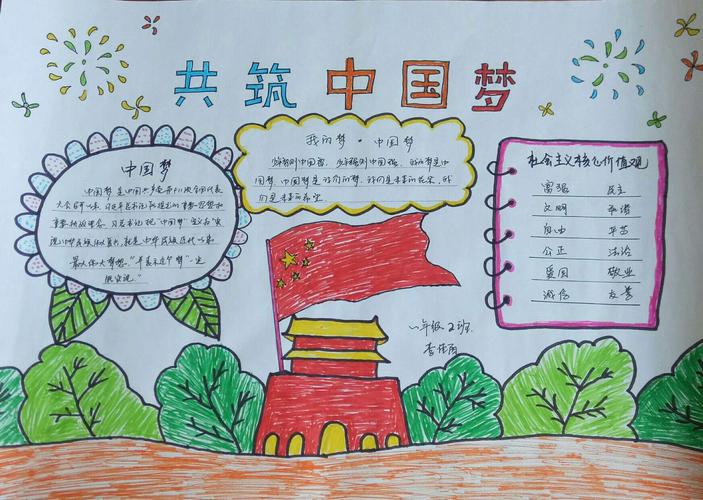 共筑中国梦
中国梦
中国梦是中国共产党第十八次全国代表
大会召开以来,习近平总书记所提出的重要思想和
重要执政理念。习总书记把"中国梦"定义为"实
现中华民族伟大复兴,就是中华民族近代以来
最大梦想,"并表示这个梦"一定
能实现。"
我的梦·中国梦
则中国强。我的梦是中
国梦,中国梦是我们的梦。我们是未来的花朵,我
们是未来的希望。
社会主义核心价值观
富强 民主
文明 和谐
自由 平等
公正 法治
爱国 敬业
诚信 友善
年级2班.